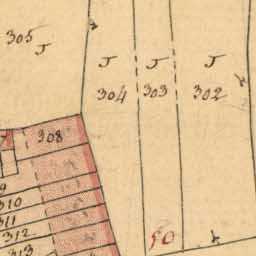 305
J
J
304
J
303
J
302
308
9
310
311
312
313
50